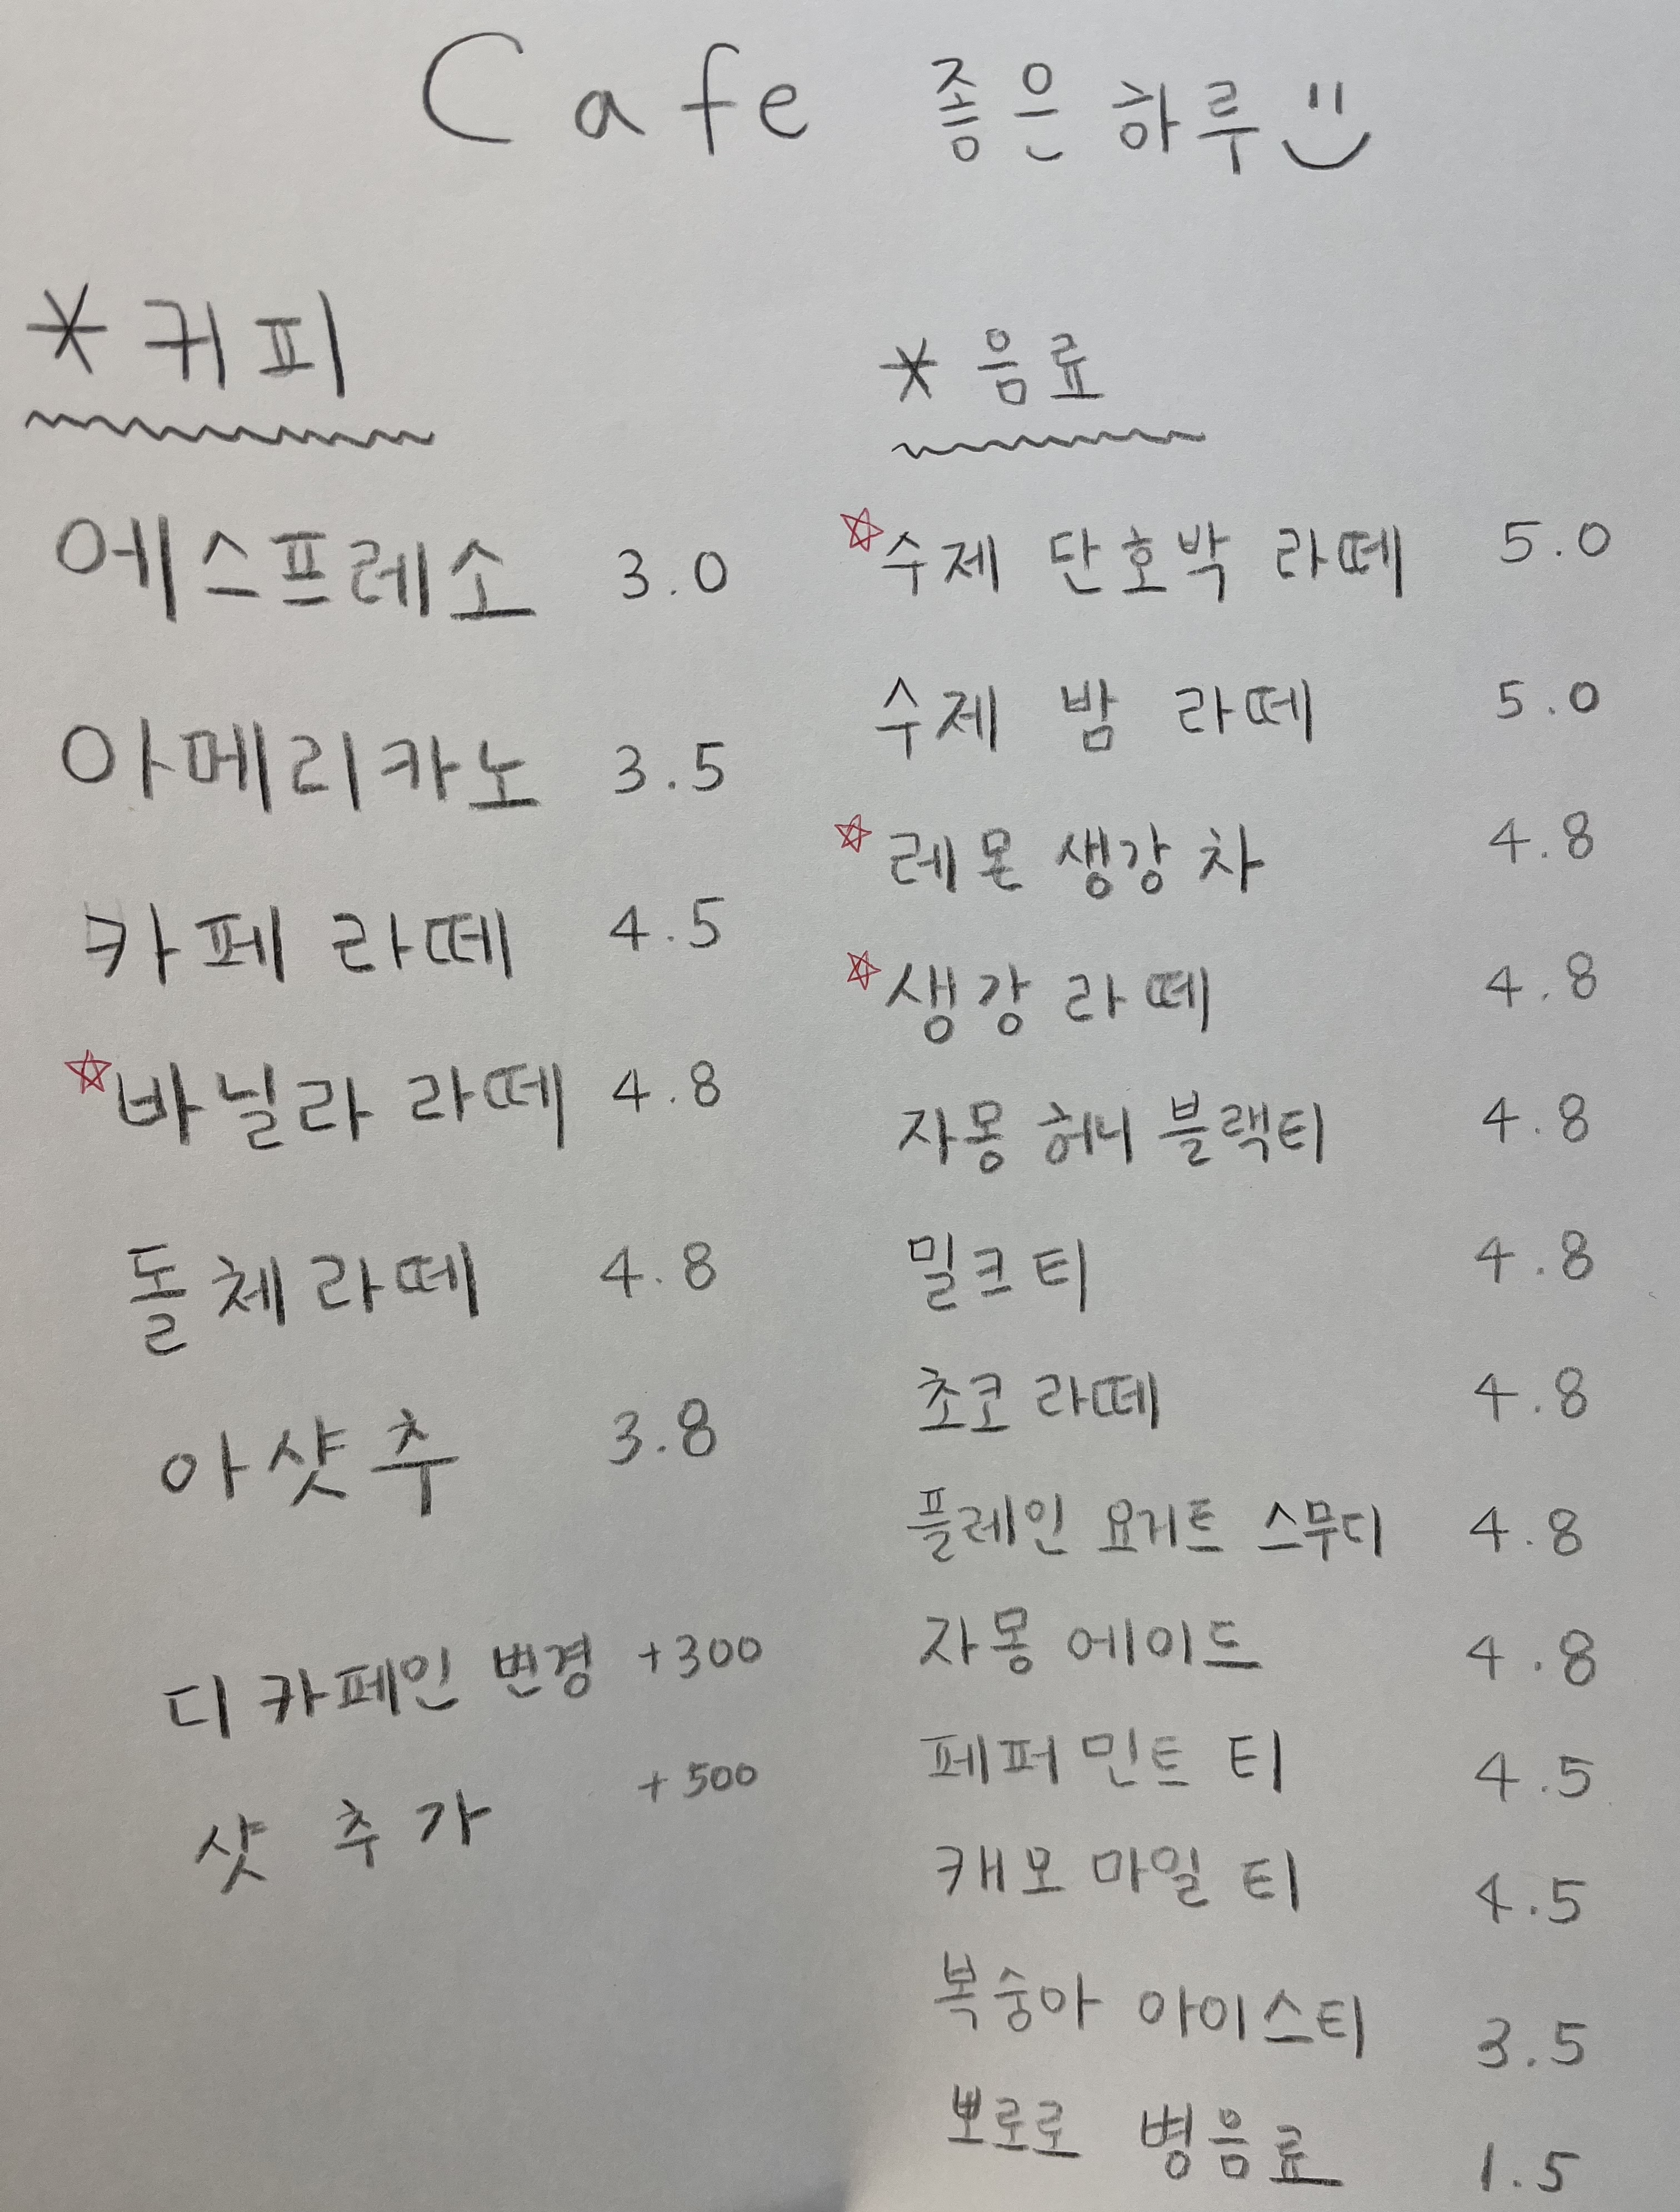 Cafe 좋은하루
*커피
에스프레소 3.0
아메리카노 3.5
카페 라떼 4.5
☆바닐라 라떼 4.8
돌체라떼 4.8
아샷추 3.8
디카페인 변경 +300
샷 추가 +500
*음료
☆수제 단호박 라떼 5.0
수제 밤 라떼 5.0
☆레몬 생강차 4.8
☆생강 라떼 4.8
자몽 허니 블랙티 4.8
밀크티 4.8
초코라떼 4.8
플레인 요거트 스무디 4.8
자몽에이드 4.8
페퍼민트 티 4.5
캐모마일 티 4.5
복숭아 아이스티 3.5
뽀로로 병음료 1.5